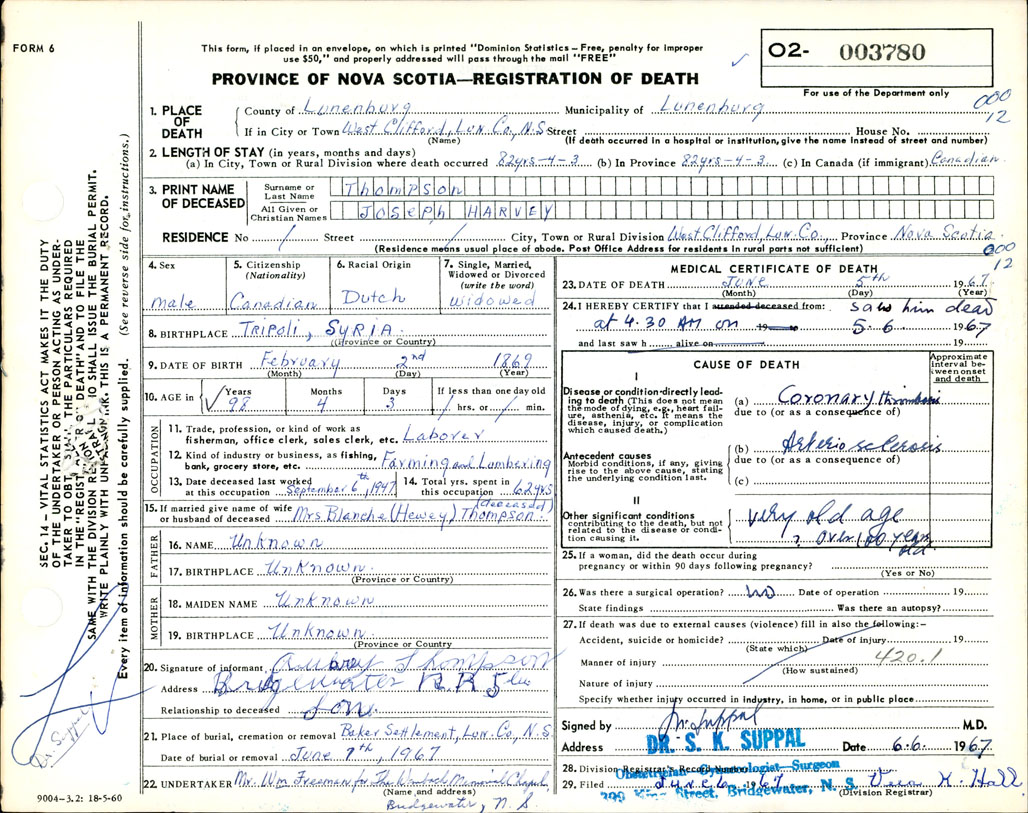 FORM 6
This form, if placed in an envelope, on which is printed "Dominion Statistics—Free, penalty for improper
use $50," and properly addressed will pass through the mail "FREE"
PROVINCE OF NOVA SCOTIA—REGISTRATION OF DEATH
O2- 003780
For use of the Department only
000
12
1. PLACE OF DEATH
County of Lunenburg Municipality of Lunenburg
If in City or Town West Clifford, Lun. Co., N.S. Street House No.
(Name) (If death occurred in a hospital or institution, give the name instead of street and number)
2. LENGTH OF STAY (in years, months and days)
(a) In City, Town or Rural Division where death occurred 82yrs-4-3 (b) In Province 82yrs-4-3 (c) In Canada (if immigrant) Canadian
3. PRINT NAME OF DECEASED
Surname or Last Name Thompson
All Given or Christian Names JOSEPH HARVEY
RESIDENCE No / Street / City, Town or Rural Division West Clifford, Lun. Co., Province Nova Scotia
(Residence means usual place of abode. Post Office Address for residents in rural parts not sufficient)
000
12
4. Sex
male
5. Citizenship
(Nationality)
Canadian
6. Racial Origin
Dutch
7. Single, Married,
Widowed or Divorced
(write the word)
widowed
8. BIRTHPLACE Tripoli, Syria
(Province or Country)
9. DATE OF BIRTH February 2nd 1869
(Month) (Day) (Year)
10. AGE in Years Months Days If less than one day old
98 4 3 / hrs. or / min.
OCCUPATION
11. Trade, profession, or kind of work as
fisherman, office clerk, sales clerk, etc. Laborer
12. Kind of industry or business, as fishing,
bank, grocery store, etc. Farming and Lumbering
13. Date deceased last worked
at this occupation September 6th, 1947
14. Total yrs. spent in
this occupation 62yrs
15. If married give name of wife
or husband of deceased Mrs Blanche (Hewey) Thompson (deceased)
FATHER
16. NAME Unknown
17. BIRTHPLACE Unknown
(Province or Country)
MOTHER
18. MAIDEN NAME Unknown
19. BIRTHPLACE Unknown
(Province or Country)
20. Signature of informant Aubrey Thompson
Address Bridgewater R R 5
Relationship to deceased Son
21. Place of burial, cremation or removal Baker Settlement, Lun. Co., N.S.
Date of burial or removal June 7th, 1967
22. UNDERTAKER Mr. Wm Freeman for The Memorial Chapel
(Name and address)
Bridgewater, N.S.
9004-3.2: 18-5-60
MEDICAL CERTIFICATE OF DEATH
23. DATE OF DEATH June 5th 1967
(Month) (Day) (Year)
24. I HEREBY CERTIFY that I attended deceased from: saw him dead
at 4.30 AM on 19 5.6 1967
and last saw h alive on 19
CAUSE OF DEATH
Approximate interval between onset and death
I
Disease or condition directly leading to death (This does not mean the mode of dying, e.g., heart failure, asthenia, etc. It means the disease, injury, or complication which caused death.)
(a) Coronary thrombosis
due to (or as a consequence of)
Antecedent causes
Morbid conditions, if any, giving rise to the above cause, stating the underlying condition last.
(b) Arteriosclerosis
due to (or as a consequence of)
(c)
II
Other significant conditions
contributing to the death, but not related to the disease or condition causing it.
very old age
? over 100 years
old.
25. If a woman, did the death occur during
pregnancy or within 90 days following pregnancy?
(Yes or No)
26. Was there a surgical operation? No Date of operation 19
State findings Was there an autopsy?
27. If death was due to external causes (violence) fill in also the following:—
Accident, suicide or homicide? Date of injury 19
(State which)
Manner of injury 420.1
(How sustained)
Nature of injury
Specify whether injury occurred in industry, in home, or in public place
Signed by Suppal M.D.
Address DR. S. K. SUPPAL Date 6.6. 1967
28. Division Registrar's Record Number
Obstetrician Gynaecologist—Surgeon
29. Filed June 6 1967
King Street, Bridgewater, N. S. K. Hall
(Division Registrar)
SEC. 14—VITAL STATISTICS ACT MAKES IT THE DUTY
OF THE UNDERTAKER OR PERSON ACTING AS UNDER-
TAKER TO OBTAIN THE PARTICULARS REQUIRED
IN THE "REGISTRATION OF DEATH" AND TO FILE THE
SAME WITH THE DIVISION REGISTRAR WHO SHALL ISSUE THE BURIAL PERMIT.
WRITE PLAINLY WITH UNFADING INK. THIS IS A PERMANENT RECORD.
Every item of information should be carefully supplied. (See reverse side for instructions.)
Dr. Suppal